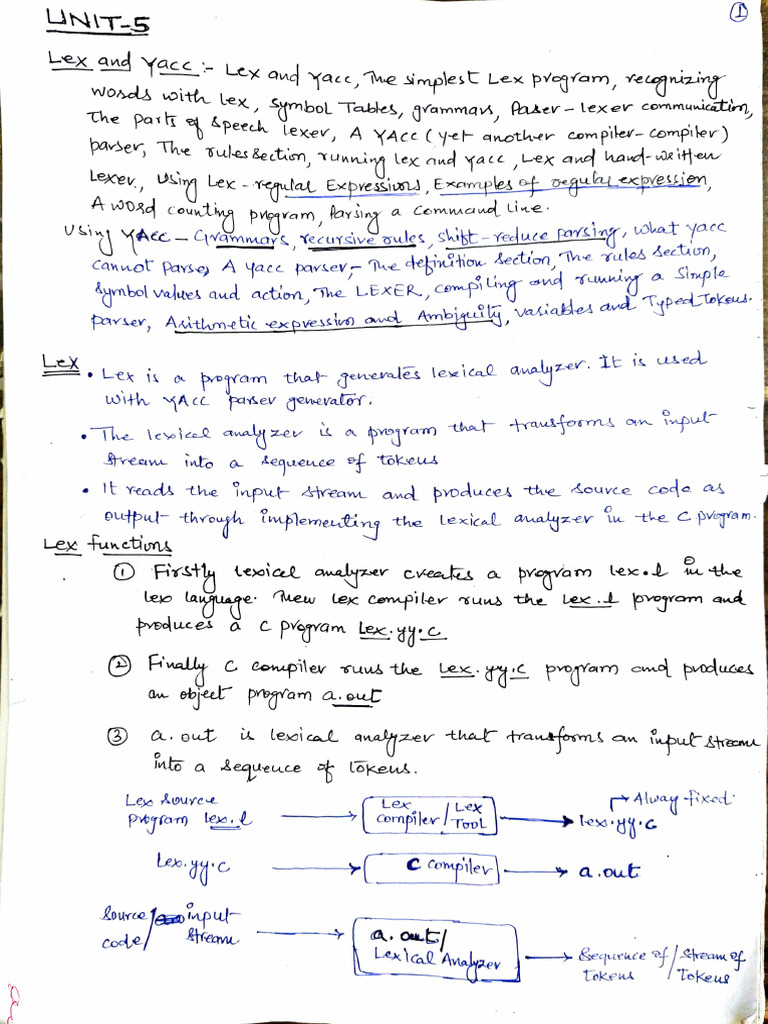 UNIT-5
1
Lex and Yacc :- Lex and Yacc, The simplest Lex program, recognizing
words with lex, symbol Tables, grammars, Paser-lexer communication,
The parts of speech lexer, A YAcc (yet another compiler-compiler)
parser, The rules section, running lex and yacc, Lex and hand-written
Lexer, Using Lex - regular Expressions, Examples of regular expression,
A word counting program, Parsing a command line.
Using YAcc - Grammars, recursive rules, shift-reduce parsing, what yacc
cannot Parse, A yacc parser, - The definition section, The rules section,
symbol values and action, The LEXER, compiling and running a Simple
parser, Arithmetic expression and Ambiguity, variables and Typed Tokens.
Lex
• Lex is a program that generates lexical analyzer. It is used
with YAcc parser generator.
• The lexical analyzer is a program that transforms an input
stream into a sequence of tokens
• It reads the input stream and produces the source code as
output through implementing the lexical analyzer in the C program.
Lex functions
1 Firstly lexical analyzer creates a program lex.l in the
lex language. Then lex compiler runs the lex.l program and
produces a C program Lex.yy.c
2 Finally C compiler runs the lex.yy.c program and produces
an object program a.out
3 a.out is lexical analyzer that transforms an input stream
into a sequence of tokens.
Lex source
program lex.l
Lex
compiler / Lex
TOOL
Alway fixed.
lex.yy.c
Lex.yy.c
C compiler
a.out
source / input
code / stream
a.out/
Lexical Analyzer
Sequence of / Stream of
tokens / Tokens